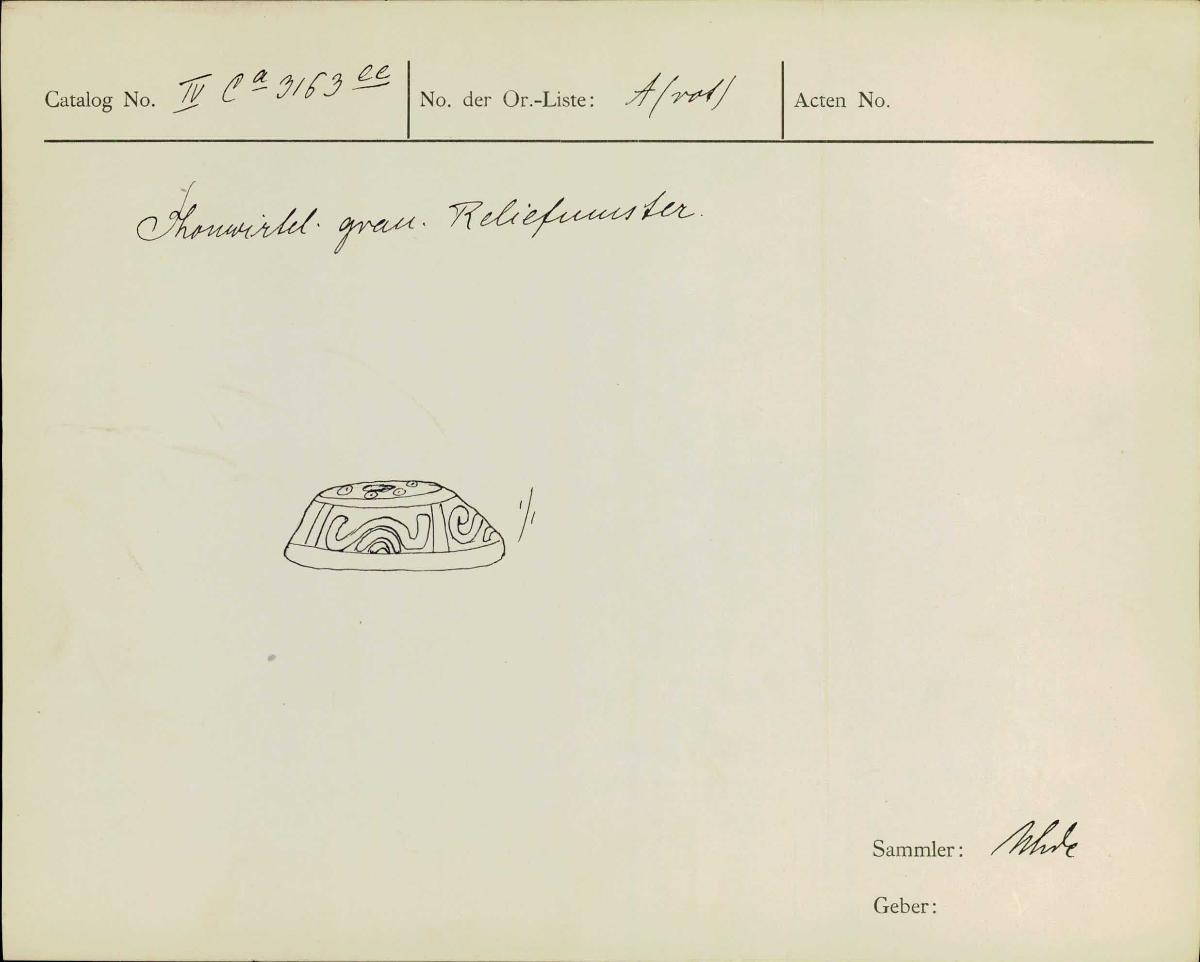 Catalog No. IV Ca 3163 ee No. der Or.-Liste: A (rot) Acten No.
Thonwirtel. grau. Reliefmuster.
1/1
Sammler: Uhde
Geber: